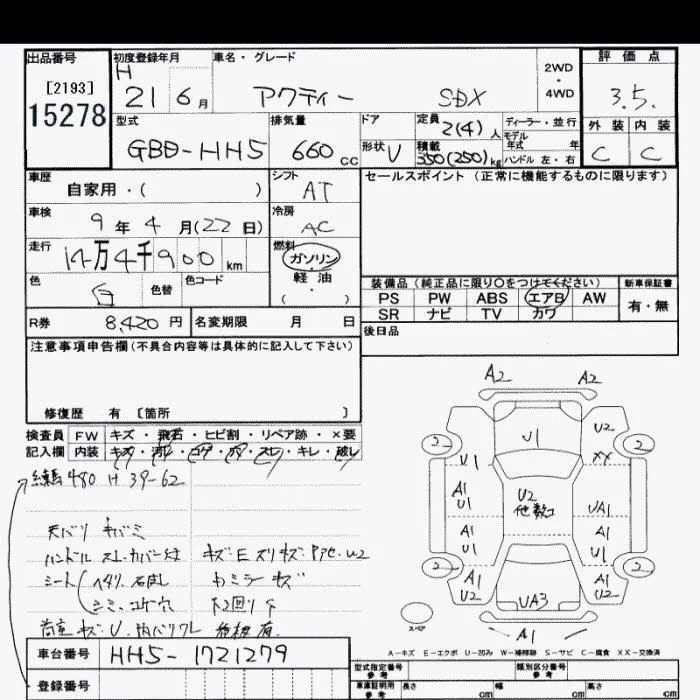 出品番号
[2193]
15278
初度登録年月
H 21 6月
車名・グレード
アクティー SDX
2WD・4WD
評価点
3.5
外装 内装
C C
型式
GBD-HH5
排気量
660 cc
ドア
形状 V
定員 2(4)人
積載 350(250)kg
ディーラー・並行
モデル年式 年
ハンドル 左・右
車歴
自家用・( )
シフト
AT
セールスポイント(正常に機能するものに限ります)
車検
9年4月(22日)
冷房
AC
走行
14万4千900km
燃料
ガソリン・軽油
( )
色
白
色替
色コード
装備品(純正品に限り○をつけてください)
新車保証書
PS PW ABS エアB AW
有・無
SR ナビ TV カワ
R券 8,420円
名変期限 月 日
後日品
注意事項申告欄(不具合内容等は具体的に記入して下さい)
修復歴 有 〔箇所 〕
検査員記入欄
FW キズ・飛石・ヒビ割・リペア跡・×要
内装 キズ・汚レ・コゲ・穴・スレ・キレ・破レ
480 H 39-62
天バリ キバミ
ハンドル スレ
シート
シミ、コゲ穴
A2 A2
U1
U2
XX
2 2
U1
A1
U1
U2
UA1
A1
U1
A1
U1
2 2
A1
U2
A1
U2
UA3
A1
スペア
A-キズ E-エクボ U-凹み W-補修跡 S-サビ C-腐食 XX-交換済
車台番号 HH5-1721279
登録番号
型式指定番号 参考
類別区分番号 参考
車庫証明用 参考
長さ cm
幅 cm
高さ cm